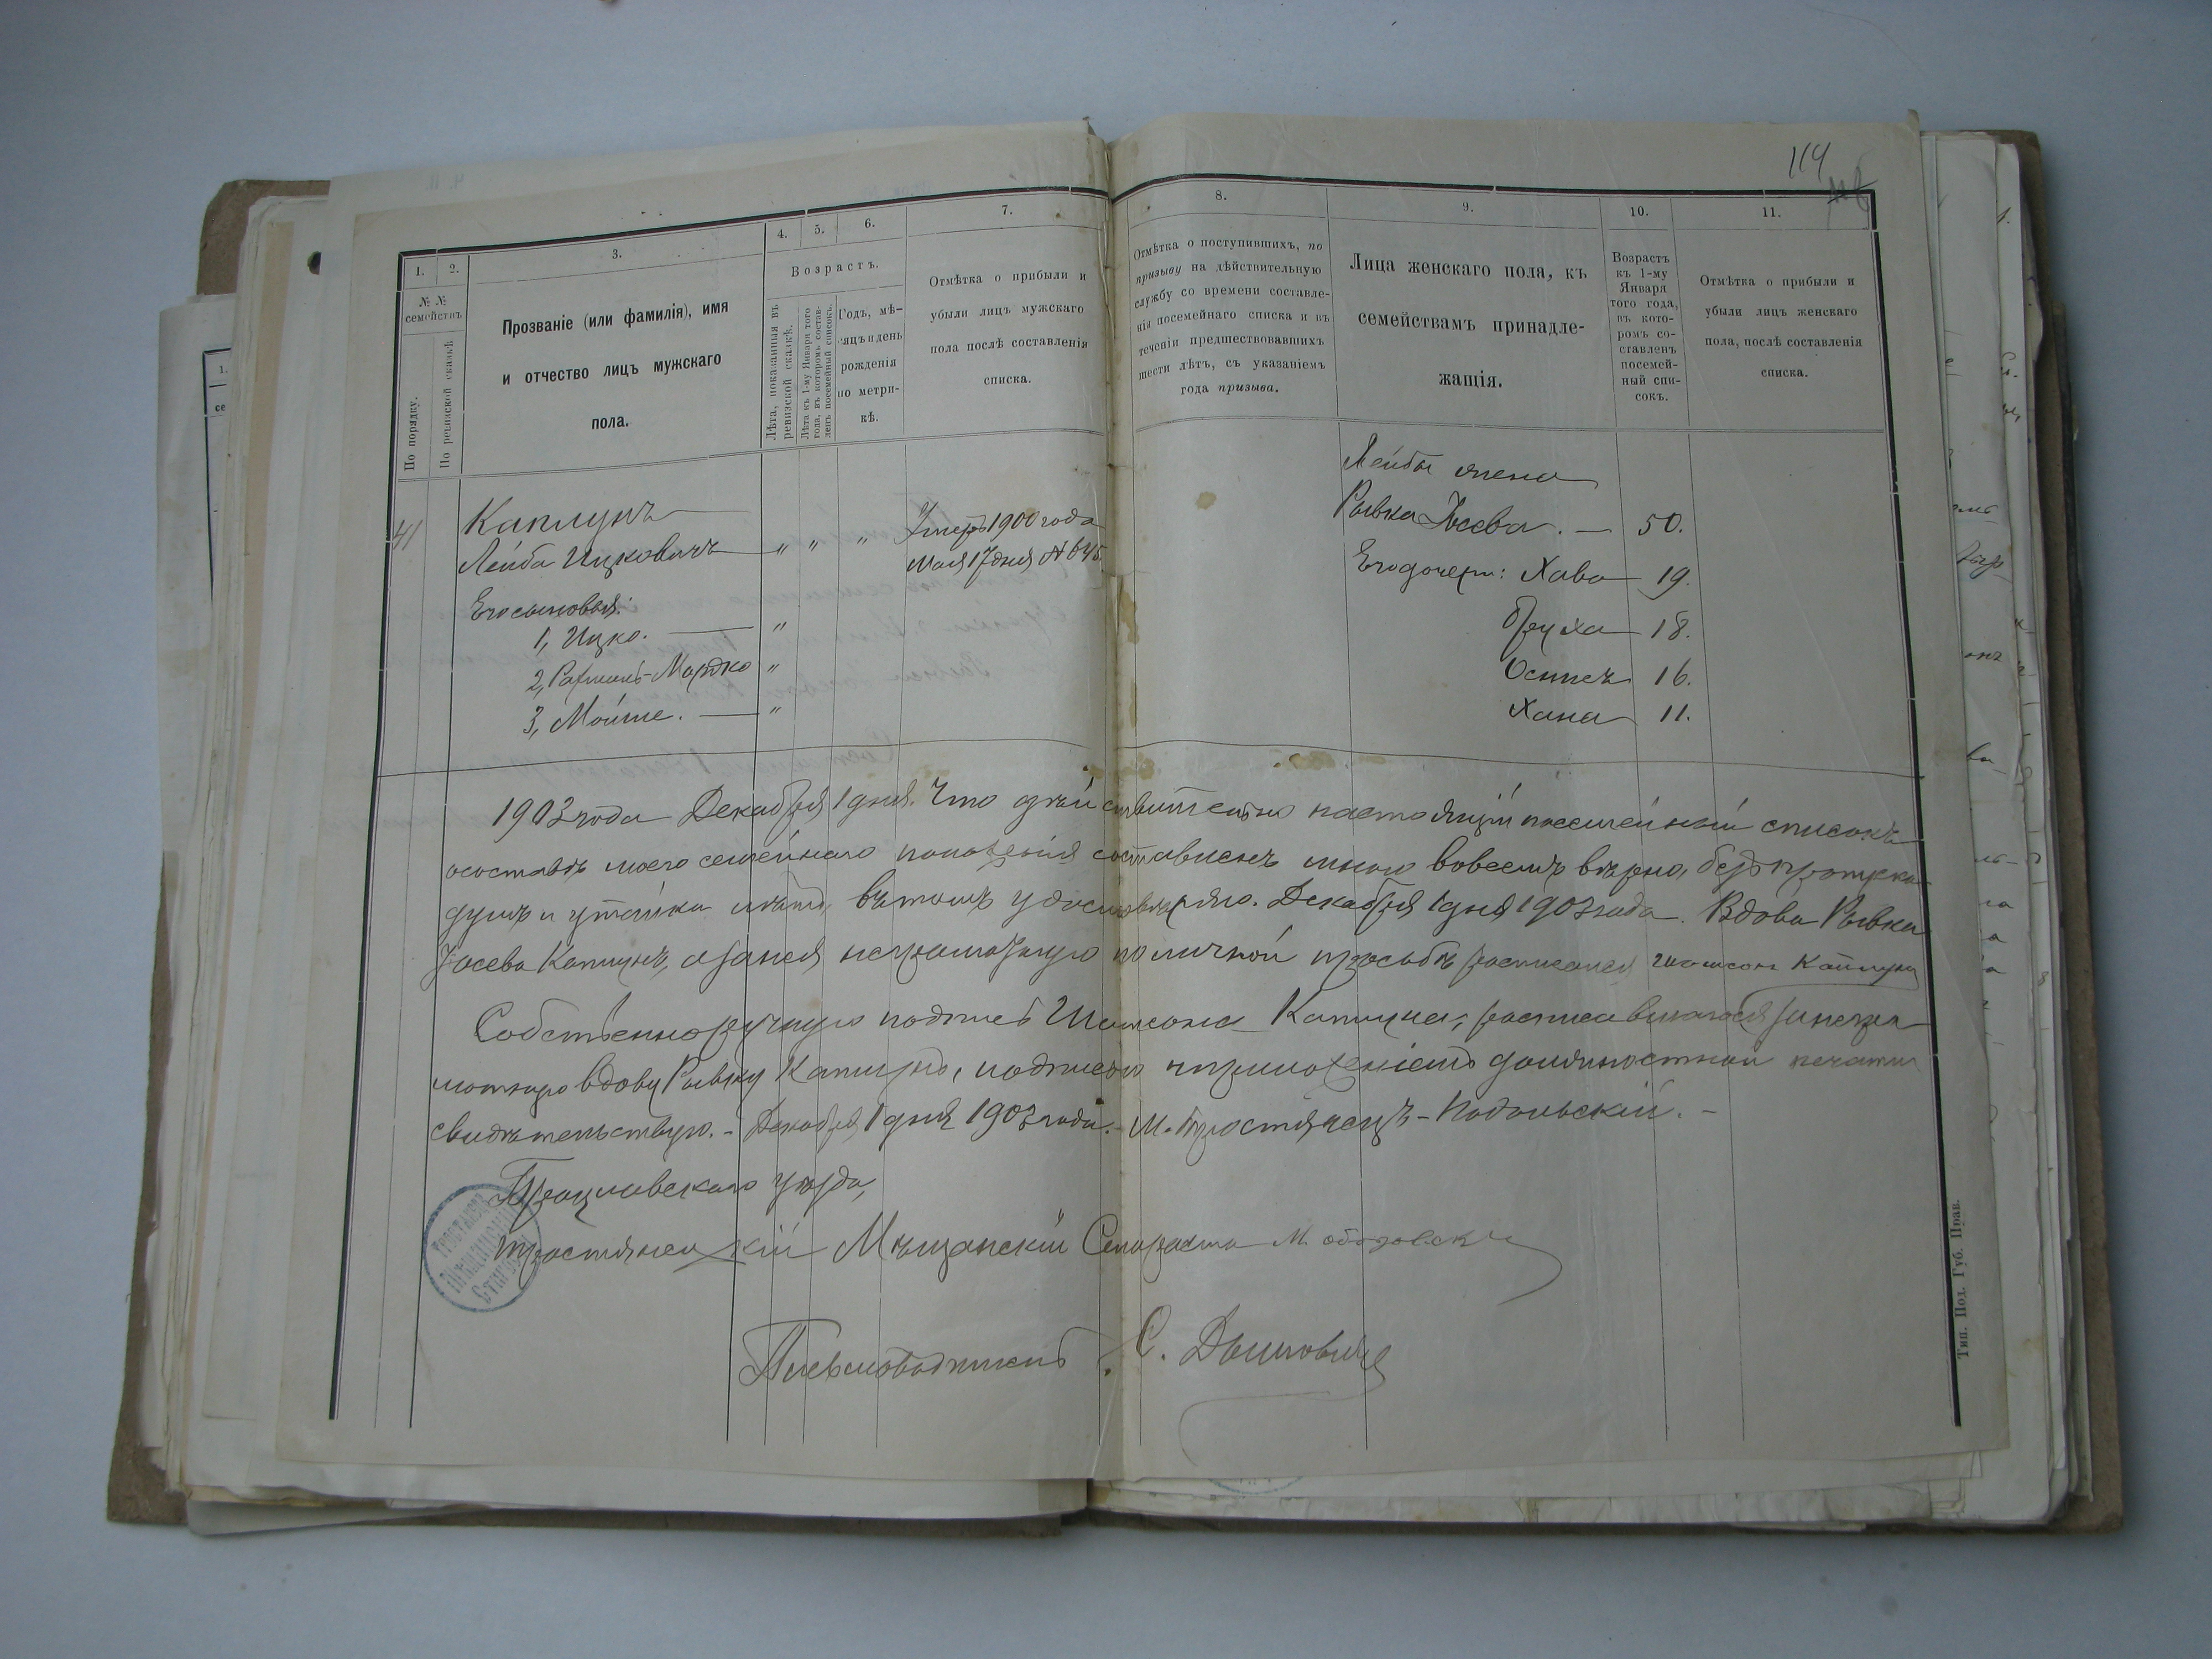 114
1.
2.
3.
4.
5.
6.
7.
8.
9.
10.
11.
№ №
семействъ
По порядку.
По ревизской сказкѣ.
Прозваніе (или фамилія), имя
и отчество лицъ мужскаго
пола.
Возрастъ.
Лѣта, показанныя въ
ревизской сказкѣ.
Лѣта къ 1-му Января того
года, въ которомъ состав-
ленъ посемейный списокъ.
Годъ, мѣ-
яцъ и день
рожденія
по метри-
кѣ.
Отмѣтка о прибыли и
убыли лицъ мужскаго
пола послѣ составленія
списка.
Отмѣтка о поступившихъ, по
призыву на дѣйствительную
службу со времени составле-
нія посемейнаго списка и въ
теченіи предшествовавшихъ
шести лѣтъ, съ указаніемъ
года призыва.
Лица женскаго пола, къ
семействамъ принадле-
жащія.
Возрастъ
къ 1-му
Января
того года,
въ кото-
ромъ со-
ставленъ
посемей-
ный спи-
сокъ.
Отмѣтка о прибыли и
убыли лицъ женскаго
пола, послѣ составленія
списка.
41
Каплунъ
Лейба Ицковичъ " " "
Умеръ 1900 года
мая 17 дня № 645.
Его сыновья:
1, Ицко. "
2, Рахмиль-Мордко "
3, Мойше. "
Лейбы жена
Рывка Іосева. — 50.
Его дочери: Хава 19.
Бруха 18.
Остеръ 16.
Хана 11.
1903 года Декабря 1 дня. Что дѣйствительно настоящій посемейный списокъ
о составѣ моего семейнаго положенія составленъ мною вовсемъ вѣрно, безъ пропуска
душъ и утайки лѣтъ, въ томъ удостовѣряю. Декабря 1 дня 1903 года. Вдова Рывка
Іосева Каплунъ, а за нея неграмотную по личной просьбѣ росписался Шамсонъ Каплунъ
Собственноручную подпись Шамсона Каплуна, росписавшагося за негра-
мотную вдову Рывку Каплунъ, подписью и приложеніемъ должностной печати
свидѣтельствую. – Декабря 1 дня 1903 года. – М. Тростянецъ-Подольскій. –
Брацлавскаго уѣзда,
Тростянецкій Мѣщанскій Староста М.
Письмоводитель С.
Тип. Под. Губ. Прав.